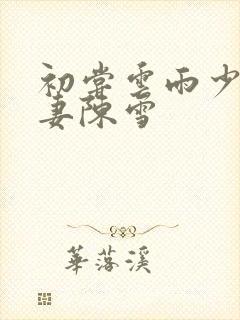 初嘗雲雨少
妻陳雪
華落溪